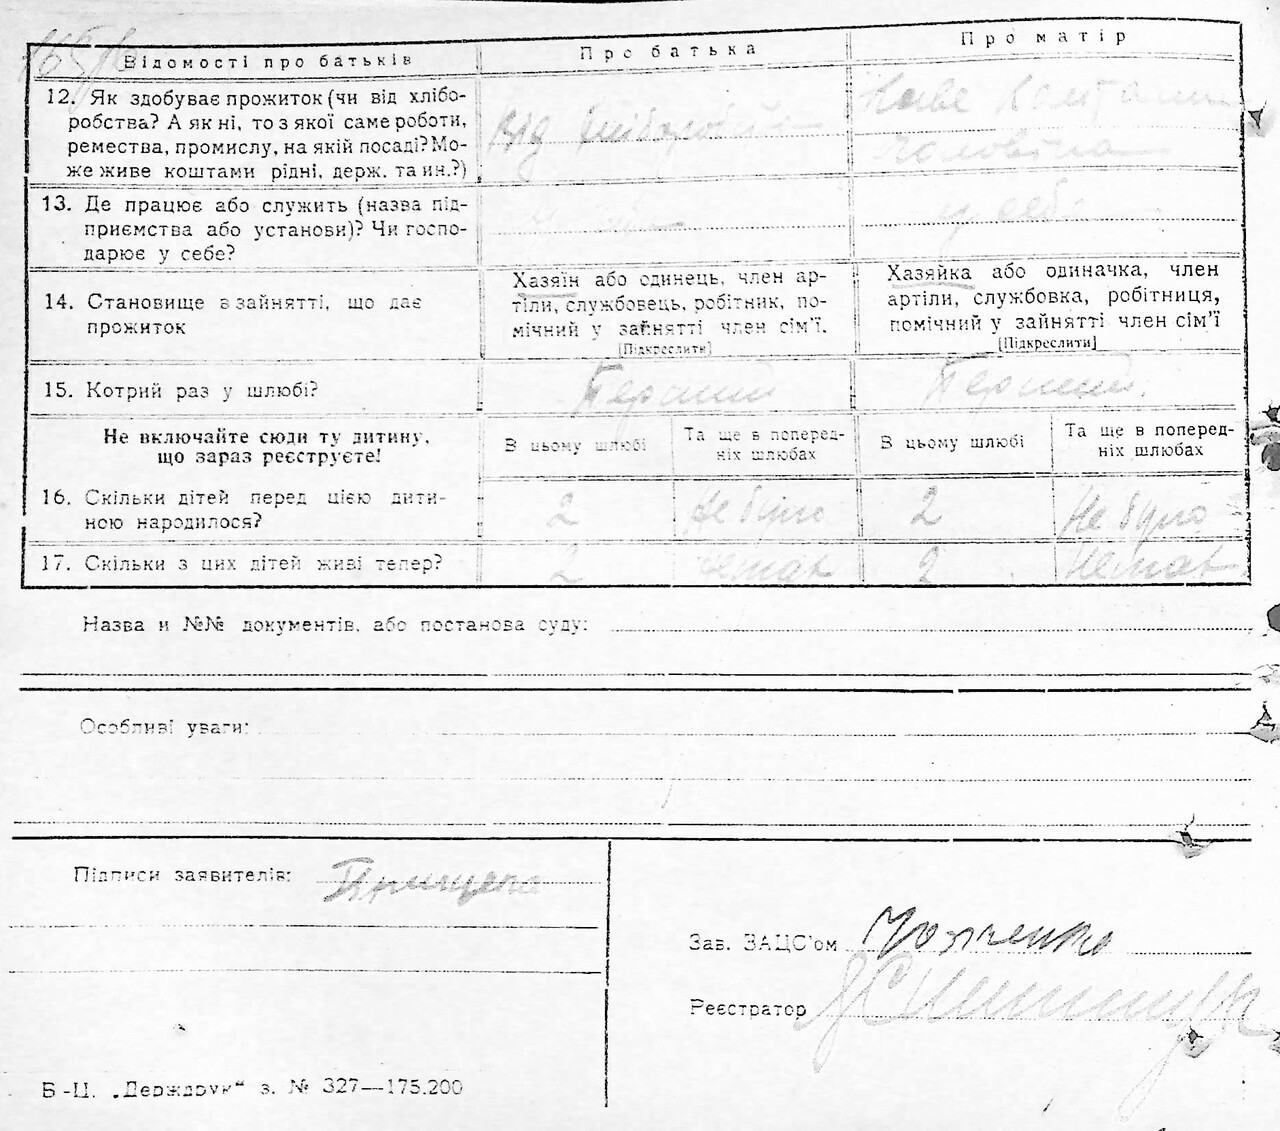 Відомості про батьків
Про батька
Про матір
12. Як здобуває прожиток (чи від хлібо-
робства? А як ні, то з якої саме роботи,
ремества, промислу, на якій посаді? Мо-
же живе коштами рідні, держ. та ин.?)
Від
живе коштами
чоловіка
13. Де працює або служить (назва під-
приємства або установи)? Чи госпо-
дарює у себе?
у себе
у себе
14. Становище в зайнятті, що дає
прожиток
Хазяїн або одинець, член ар-
тіли, службовець, робітник, по-
мічний у зайнятті член сім'ї.
[Підкреслити]
Хазяйка або одиначка, член
артіли, службовка, робітниця,
помічний у зайнятті член сім'ї
[Підкреслити]
15. Котрий раз у шлюбі?
Перший
Перший.
Не включайте сюди ту дитину,
що зараз реєструєте!
В цьому шлюбі
Та ще в поперед-
ніх шлюбах
В цьому шлюбі
Та ще в поперед-
ніх шлюбах
16. Скільки дітей перед цією дити-
ною народилося?
2
Не було
2
Не було
17. Скільки з цих дітей живі тепер?
2
Немає
2
Немає
Назва и №№ документів, або постанова суду:
Особливі уваги:
Підписи заявителів:
Зав. ЗАЦС'ом
Реєстратор
Б-Ц. „Держдрук“ з. № 327—175.200